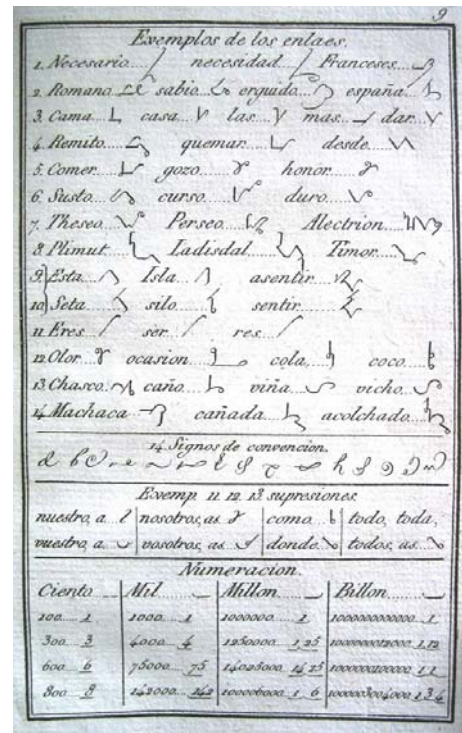 9
Exemplos de los enlaes.
1. Necesario necesidad Franceses
2. Romano sabio erguido españa
3. Cama casa las mas dar
4. Remito quemar desde
5. Comer gozo honor
6. Susto curso duro
7. Theseo Perseo Alectrion
8. Plimut Ladisdal Timor
9. Esta Isla asentir
10. Seta silo sentir
11. Eres ser res
12. Olor ocasion cola coco
13. Chasco caño viña vicho
14. Machaca cañada acolchado
14 Signos de convencion.
Exemp. 11. 12. 13. supresiones
nuestro, a nosotros, as como todo, toda,
vuestro, a vosotros, as donde todos, as
Numeracion.
Ciento Mil Millon Billon
100 1 1000 1 1000000 1 1000000000000 1
300 3 4000 4 1250000 1,25
600 6 75000 75 14025000
800 8 142000 142